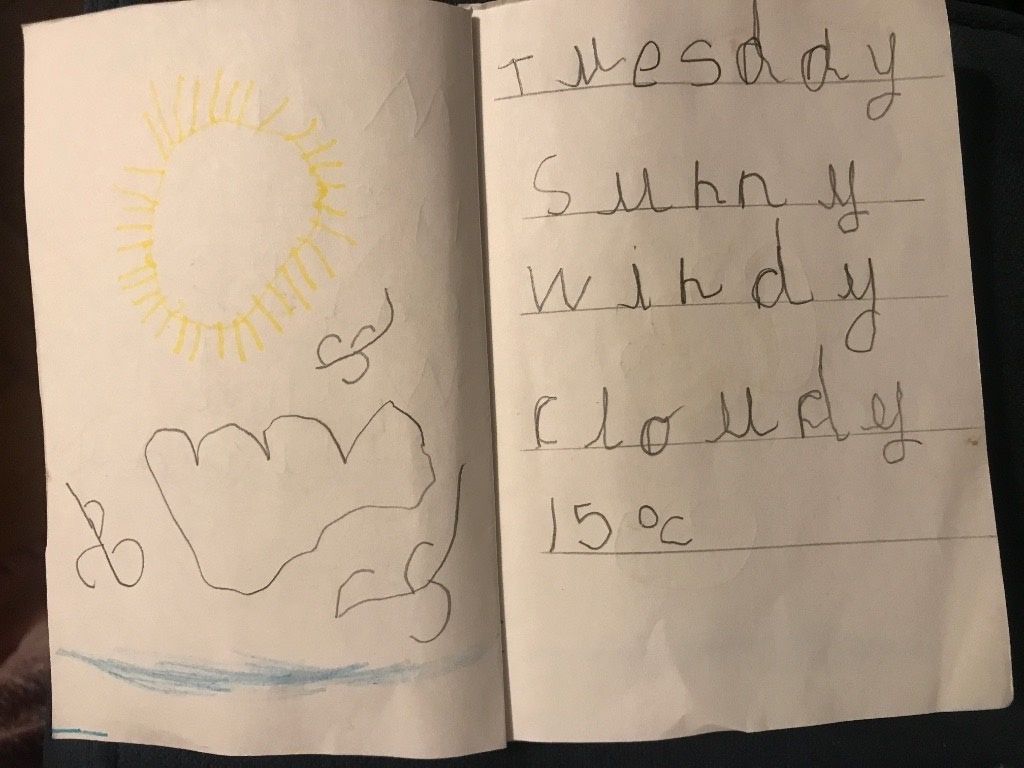 Tuesday
Sunny
Windy
Cloudy
15 °c